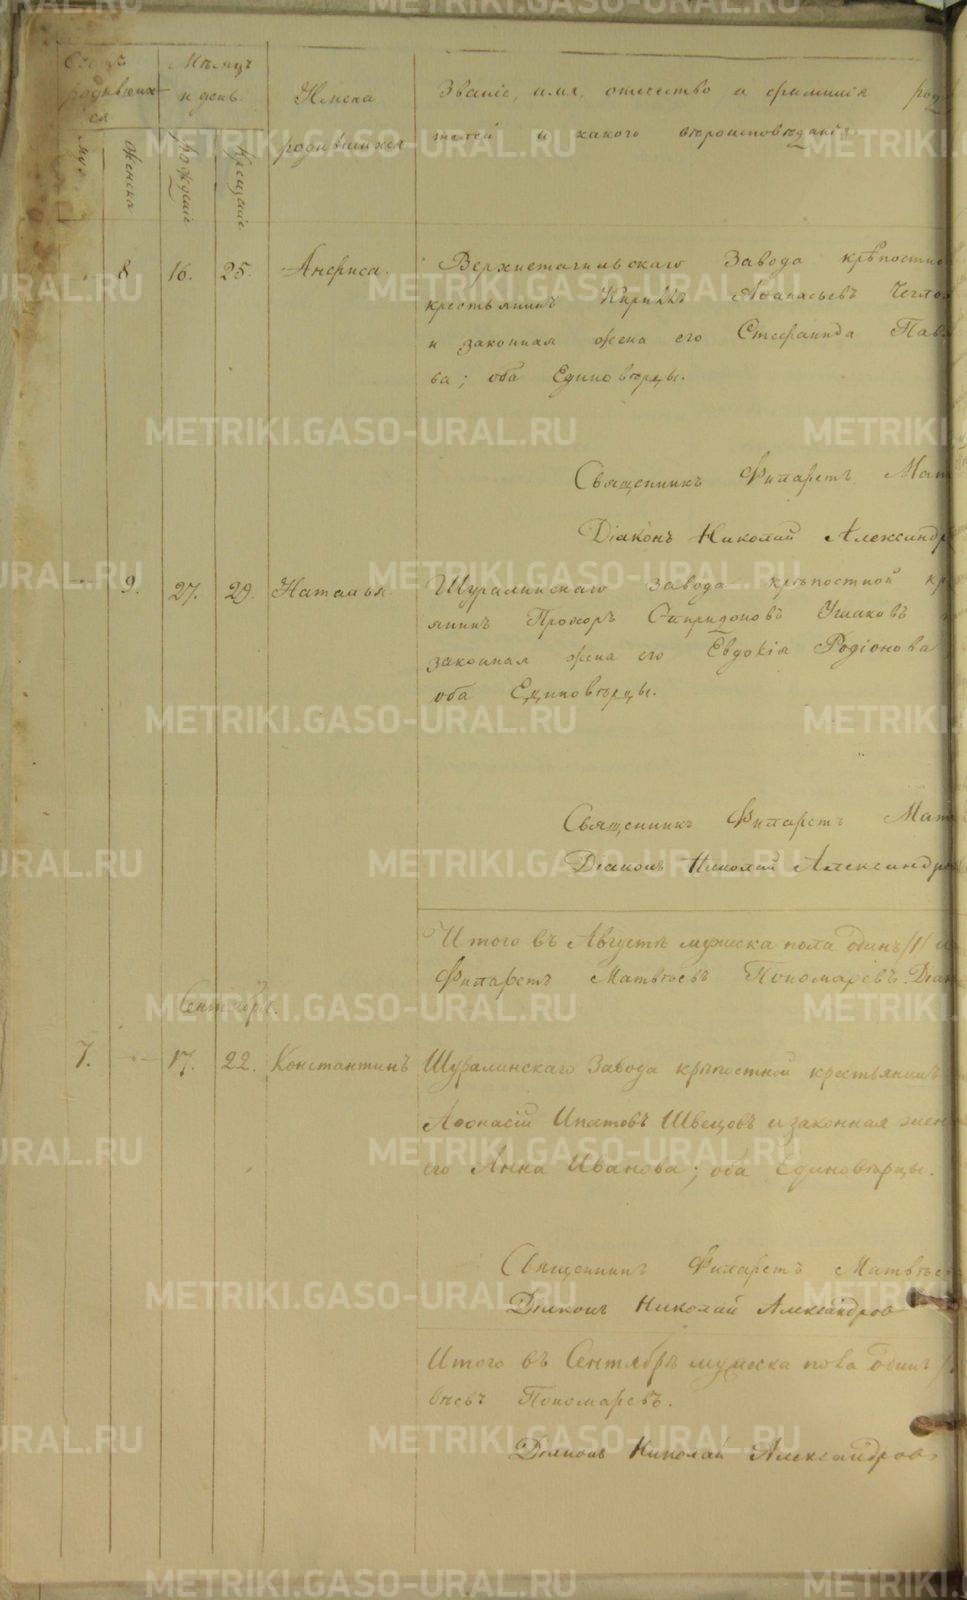 Мѣсяцъ
родивших-
ся
и день
Имена
родившихся
Званіе, имя, отчество и фамилія
телей и какого вѣроисповѣданія
женска
рожденіе
крещеніе
8 16. 25. Анфиса. Верхнетагильскаго Завода крѣпостно
крестьянинъ Кирилъ Аѳанасьевъ
и законная жена его Стефанида Пав
ва; оба Единовѣрцы.
Священникъ Филаретъ Мат
Діаконъ Николай Александр
9. 27. 29. Наталья Шуралинскаго завода крѣпостной кр
янинъ Прохоръ Спиридоновъ Ушаковъ
законная жена его Евдокія Родіонова
оба Единовѣрцы.
Священникъ Филаретъ Мат
Діаконъ Николай Александро
Итого въ Августѣ мужска пола одинъ /1/ и
Филаретъ Матвѣевъ Пономаревъ. Діак
Сентябрь.
7. - 17. 22. Константинъ Шуралинскаго Завода крѣпостной крестьянинъ
Аѳонасій Ипатовъ Швецовъ и законная жен
его Анна Иванова; оба единовѣрцы.
Священникъ Филаретъ Матвѣе
Діаконъ Николай Александров
Итого въ Сентябрѣ мужска пола одинъ /
вѣевъ Пономаревъ.
Діаконъ Николай Александров
METRIKI.GASO-URAL.RU